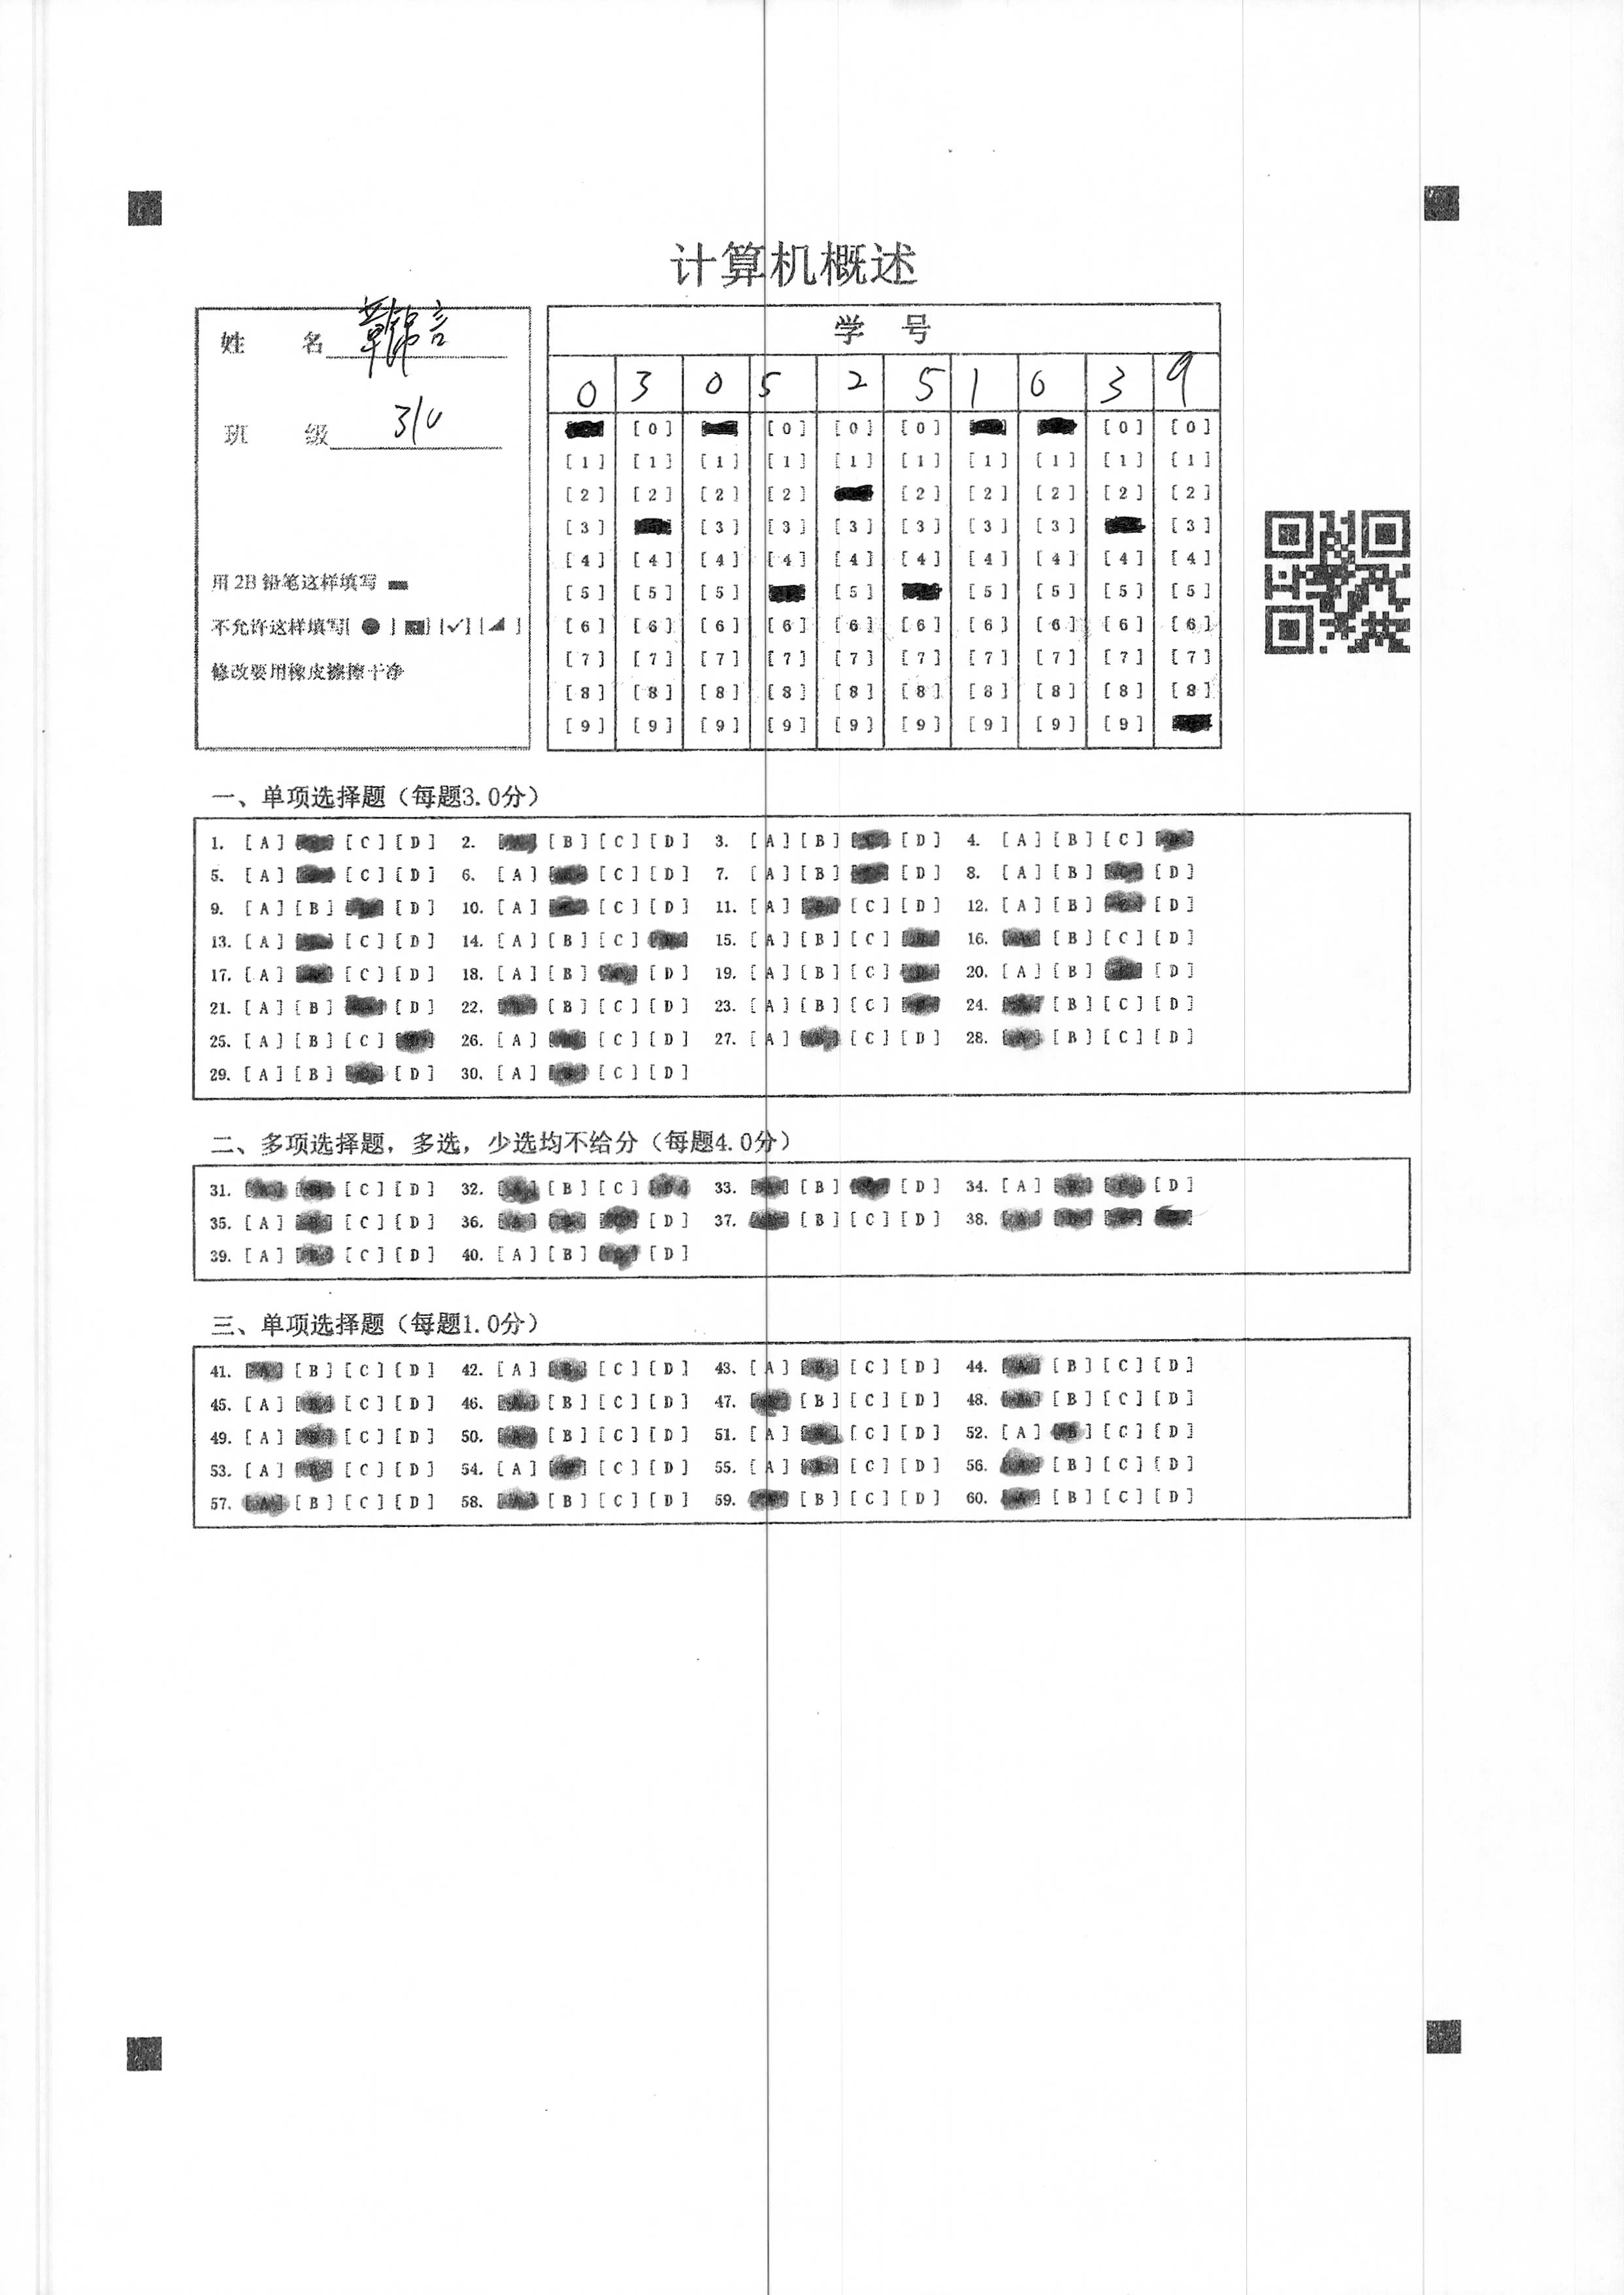 计算机概述
姓 名 章锦言
班 级 310
用 2B 铅笔这样填写
不允许这样填写[ ● ] [ ] [✓] [ ]
修改要用橡皮擦擦干净
学 号
0 3 0 5 2 5 1 0 3 9
[0] [0] [0] [0] [0]
[1] [1] [1] [1] [1] [1] [1] [1] [1] [1]
[2] [2] [2] [2] [2] [2] [2] [2] [2]
[3] [3] [3] [3] [3] [3] [3] [3]
[4] [4] [4] [4] [4] [4] [4] [4] [4] [4]
[5] [5] [5] [5] [5] [5] [5] [5]
[6] [6] [6] [6] [6] [6] [6] [6] [6] [6]
[7] [7] [7] [7] [7] [7] [7] [7] [7] [7]
[8] [8] [8] [8] [8] [8] [8] [8] [8] [8]
[9] [9] [9] [9] [9] [9] [9] [9] [9]
一、单项选择题（每题3.0分）
1. [A] [C] [D] 2. [B] [C] [D] 3. [A] [B] [D] 4. [A] [B] [C]
5. [A] [C] [D] 6. [A] [C] [D] 7. [A] [B] [D] 8. [A] [B] [D]
9. [A] [B] [D] 10. [A] [C] [D] 11. [A] [C] [D] 12. [A] [B] [D]
13. [A] [C] [D] 14. [A] [B] [C] 15. [A] [B] [C] 16. [B] [C] [D]
17. [A] [C] [D] 18. [A] [B] [D] 19. [A] [B] [C] 20. [A] [B] [D]
21. [A] [B] [D] 22. [B] [C] [D] 23. [A] [B] [C] 24. [B] [C] [D]
25. [A] [B] [C] 26. [A] [C] [D] 27. [A] [C] [D] 28. [B] [C] [D]
29. [A] [B] [D] 30. [A] [C] [D]
二、多项选择题，多选，少选均不给分（每题4.0分）
31. [C] [D] 32. [B] [C] 33. [B] [D] 34. [A] [D]
35. [A] [C] [D] 36. [D] 37. [B] [C] [D] 38.
39. [A] [C] [D] 40. [A] [B] [D]
三、单项选择题（每题1.0分）
41. [B] [C] [D] 42. [A] [C] [D] 43. [A] [C] [D] 44. [B] [C] [D]
45. [A] [C] [D] 46. [B] [C] [D] 47. [B] [C] [D] 48. [B] [C] [D]
49. [A] [C] [D] 50. [B] [C] [D] 51. [A] [C] [D] 52. [A] [C] [D]
53. [A] [C] [D] 54. [A] [C] [D] 55. [A] [C] [D] 56. [B] [C] [D]
57. [B] [C] [D] 58. [B] [C] [D] 59. [B] [C] [D] 60. [B] [C] [D]